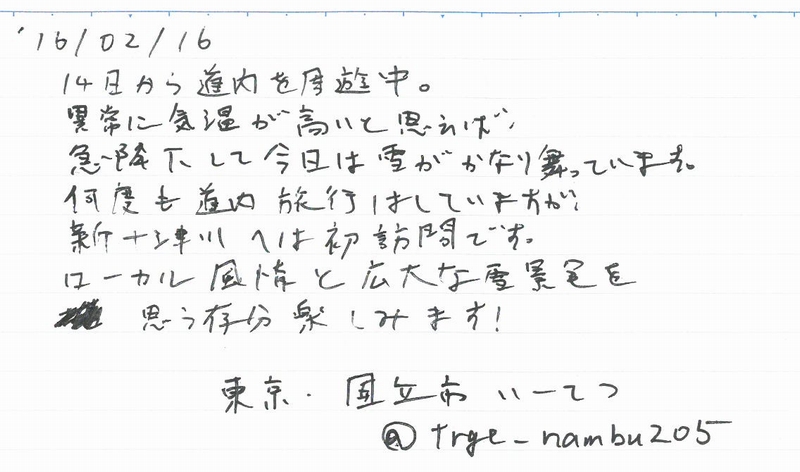 '16/02/16
14日から道内を周遊中。
異常に気温が高いと思えば、
急降下して今日は雪がかなり舞っています。
何度も道内旅行はしていますが、
新十津川へは初訪問です。
ローカル風情と広大な雪景色を
思う存分楽しみます!
東京・国立市 いーてつ
@trge_nambu205